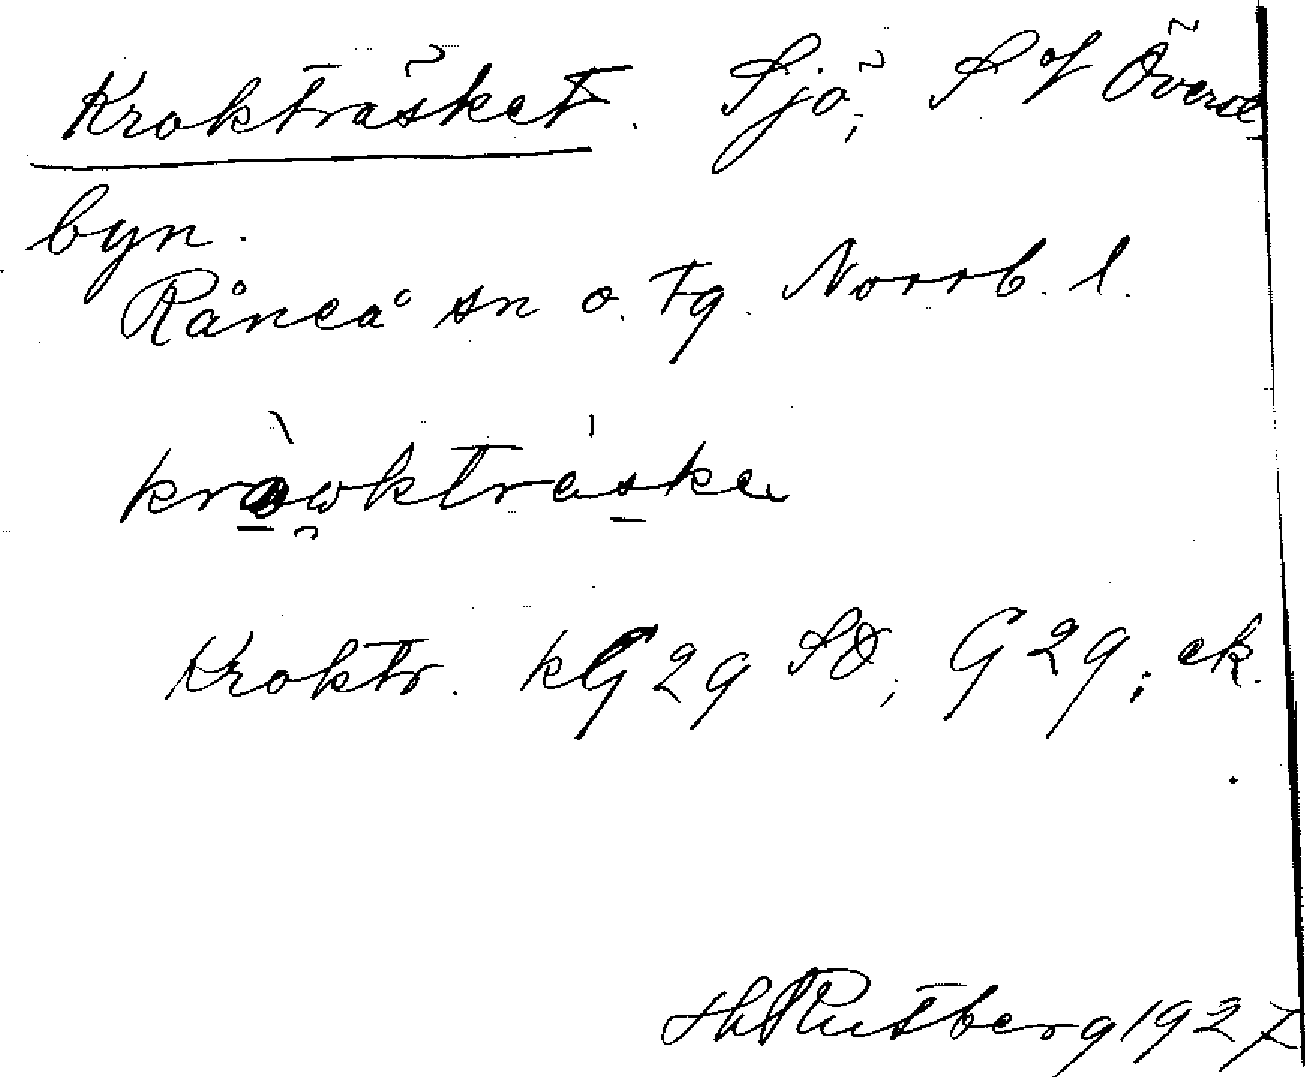 Krokträsket. Sjö; S of Överst
byn.
Råneå sn o. tg. Norrb. l.
Kroktr. kG29 SO; G29; ek.
Rutberg 1927